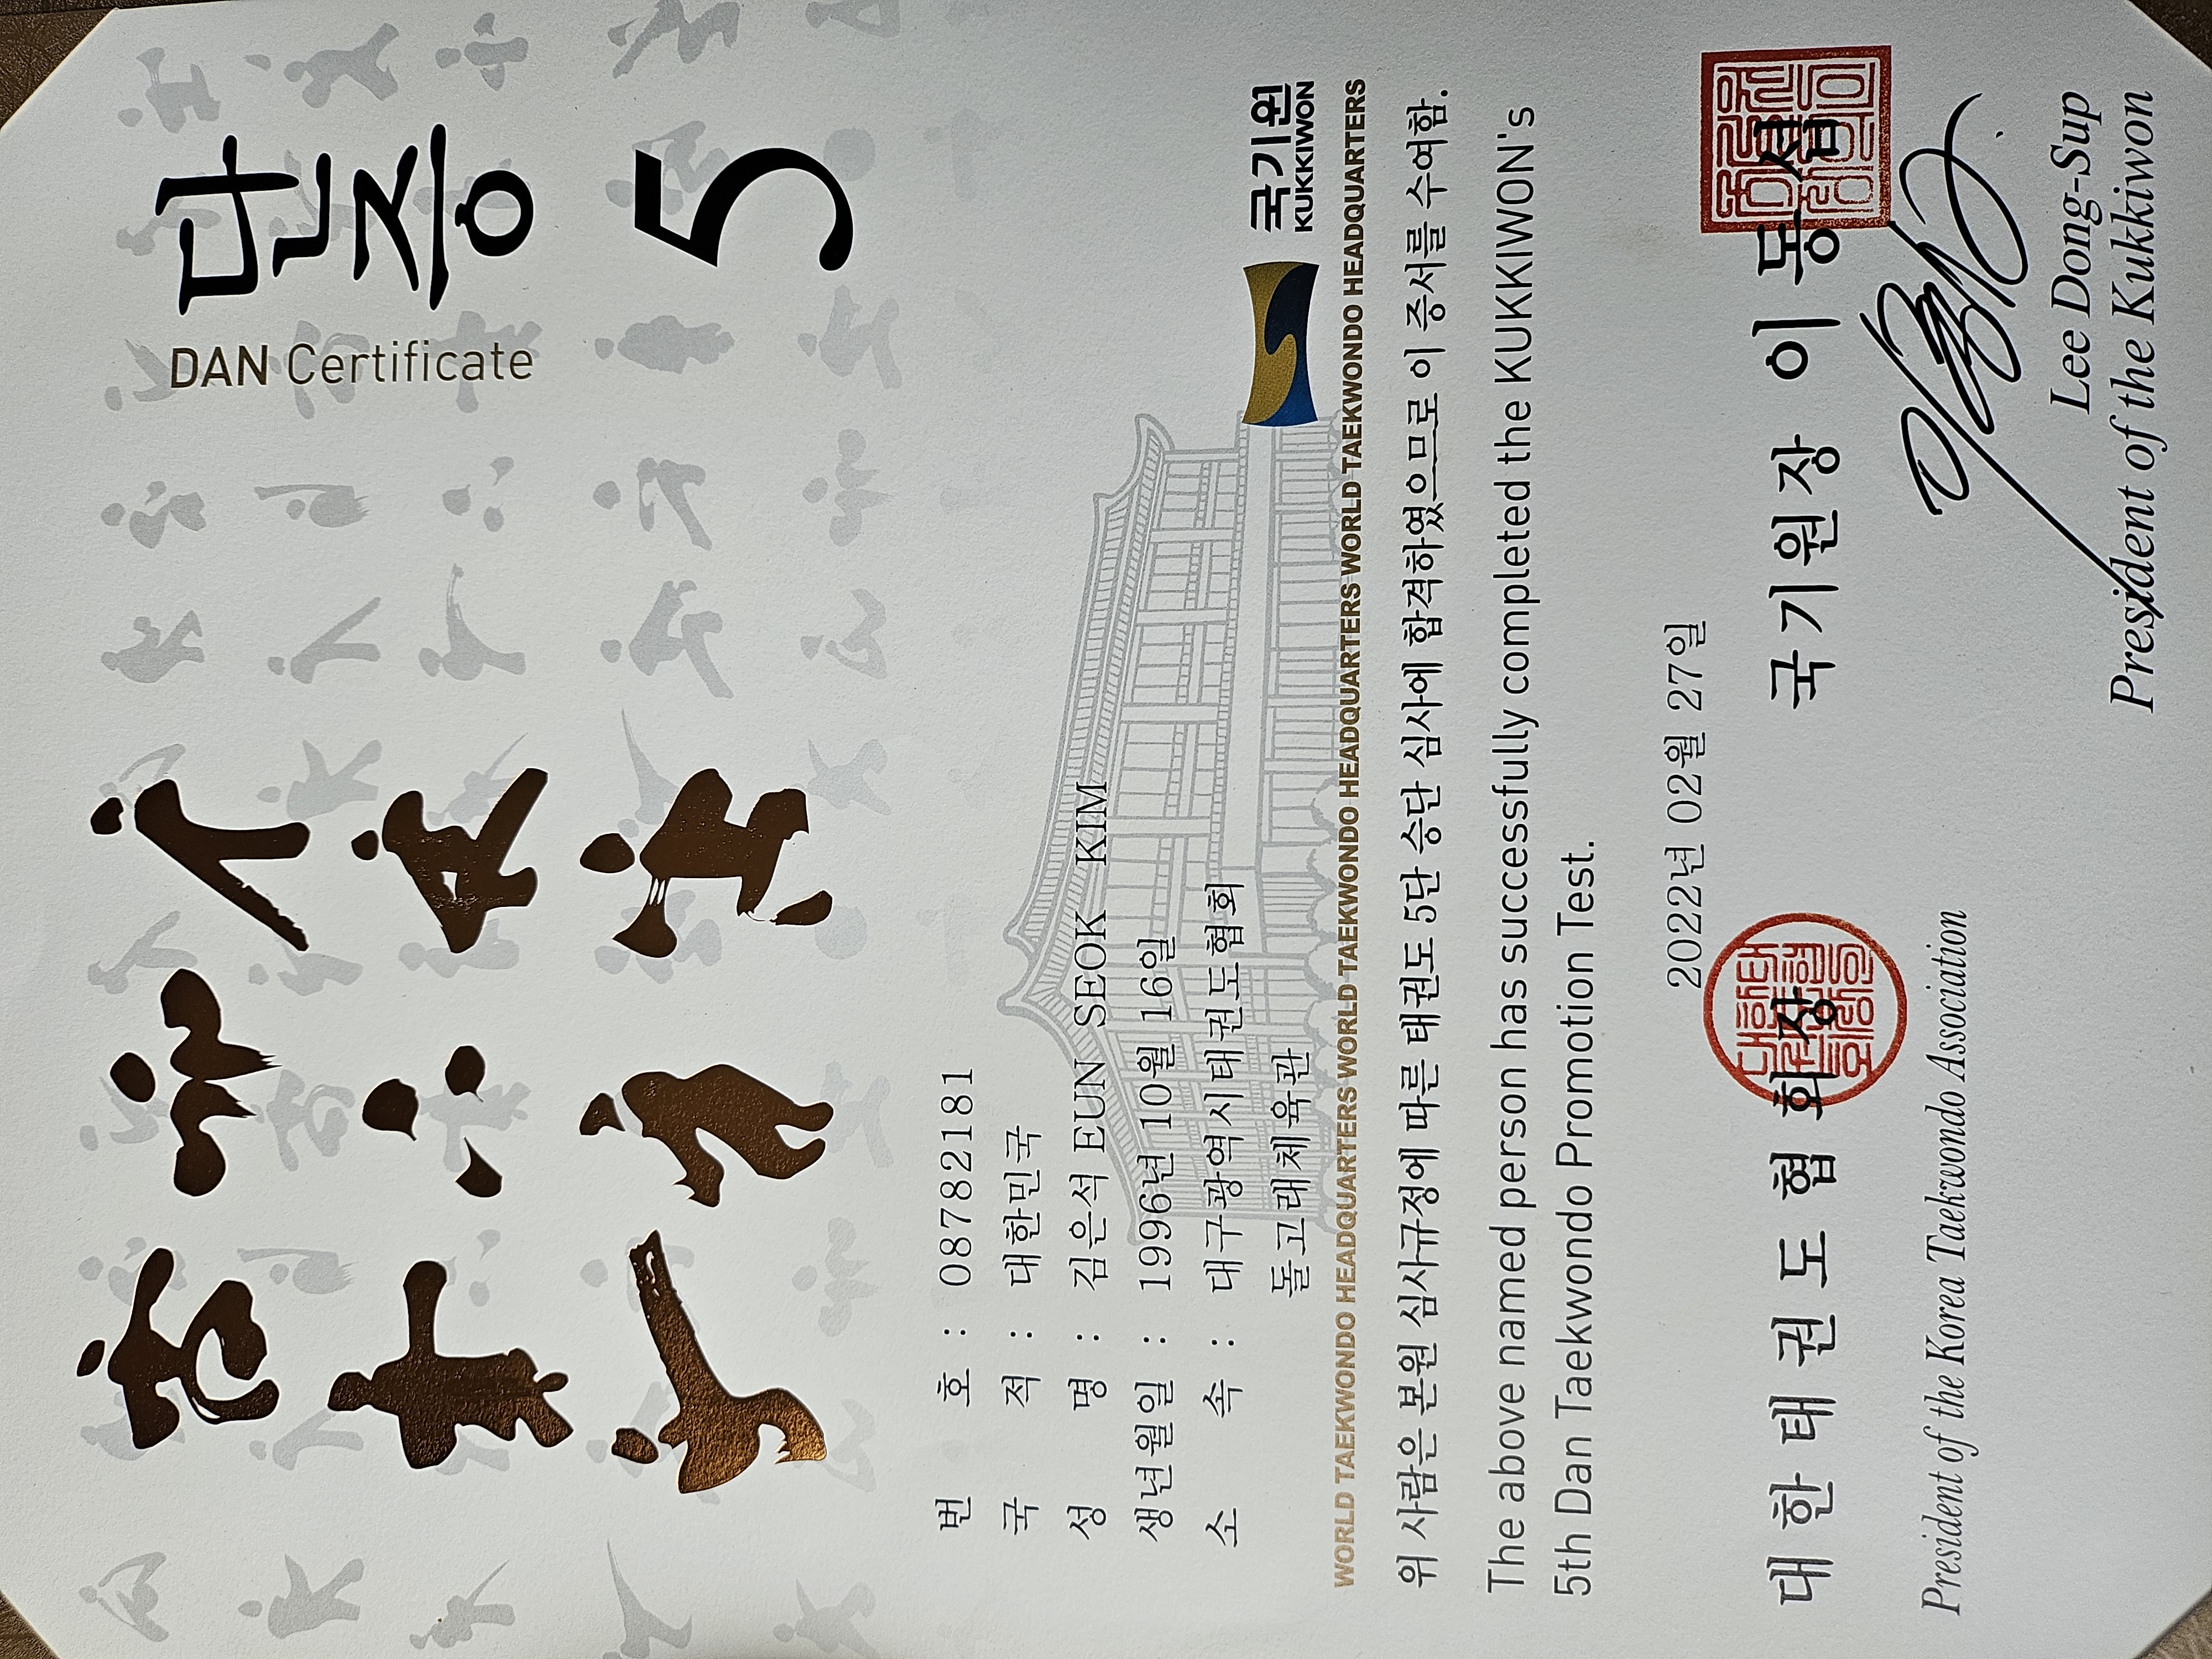 단증
DAN Certificate
5
번 호 : 08782181
국 적 : 대한민국
성 명 : 김은석 EUN SEOK KIM
생년월일 : 1996년 10월 16일
소 속 : 대구광역시태권도협회
돌고래체육관
국기원
KUKKIWON
WORLD TAEKWONDO HEADQUARTERS WORLD TAEKWONDO HEADQUARTERS WORLD TAEKWONDO HEADQUARTERS WORLD TAEKWONDO HEADQUARTERS WORLD TAEKWONDO HEADQUARTERS
위 사람은 본원 심사규정에 따른 태권도 5단 승단 심사에 합격하였으므로 이 증서를 수여함.
The above named person has successfully completed the KUKKIWON's
5th Dan Taekwondo Promotion Test.
2022년 02월 27일
대한태권도협회장
President of the Korea Taekwondo Association
국기원장 이동섭
Lee Dong-Sup
President of the Kukkiwon